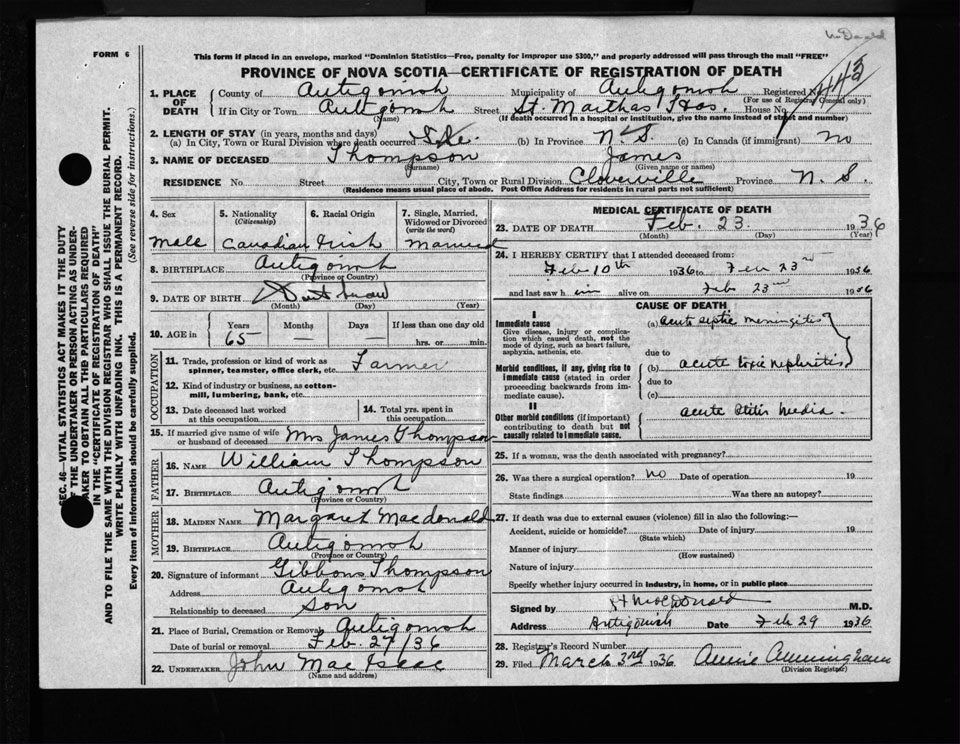 McDonald
FORM 6
This form if placed in an envelope, marked "Dominion Statistics—Free, penalty for improper use $300," and properly addressed will pass through the mail "FREE"
PROVINCE OF NOVA SCOTIA—CERTIFICATE OF REGISTRATION OF DEATH
1. PLACE OF DEATH
County of Antigonish Municipality of Antigonish Registered No.
(For use of Registrar General only)
If in City or Town Antigonish Street St. Marthas Hos. House No.
(Name) (If death occurred in a hospital or institution, give the name instead of street and number)
2. LENGTH OF STAY (in years, months and days)
(a) In City, Town or Rural Division where death occurred (b) In Province N. S. (c) In Canada (if immigrant) no
3. NAME OF DECEASED Thompson James
(Surname) (Given name or names)
RESIDENCE No. Street City, Town or Rural Division Cloverville Province N. S.
(Residence means usual place of abode. Post Office Address for residents in rural parts not sufficient)
SEC. 46—VITAL STATISTICS ACT MAKES IT THE DUTY
OF THE UNDERTAKER OR PERSON ACTING AS UNDER-
TAKER TO OBTAIN ALL THE PARTICULARS REQUIRED
IN THE "CERTIFICATE OF REGISTRATION OF DEATH"
AND TO FILE THE SAME WITH THE DIVISION REGISTRAR WHO SHALL ISSUE THE BURIAL PERMIT.
WRITE PLAINLY WITH UNFADING INK. THIS IS A PERMANENT RECORD.
Every item of information should be carefully supplied. (See reverse side for instructions.)
4. Sex
Male
5. Nationality
(Citizenship)
Canadian
6. Racial Origin
Irish
7. Single, Married, Widowed or Divorced
(write the word)
Married
8. BIRTHPLACE Antigonish
(Province or Country)
9. DATE OF BIRTH Dont know
(Month) (Day) (Year)
10. AGE in
Years Months Days If less than one day old
65 — — hrs. or min.
OCCUPATION
11. Trade, profession or kind of work as
spinner, teamster, office clerk, etc. Farmer
12. Kind of industry or business, as cotton-
mill, lumbering, bank, etc.
13. Date deceased last worked
at this occupation
14. Total yrs. spent in
this occupation
15. If married give name of wife
or husband of deceased Mrs James Thompson
FATHER
16. NAME William Thompson
17. BIRTHPLACE Antigonish
(Province or Country)
MOTHER
18. MAIDEN NAME Margaret Macdonald
19. BIRTHPLACE Antigonish
(Province or Country)
20. Signature of informant Gibbons Thompson
Address Antigonish
Relationship to deceased Son
21. Place of Burial, Cremation or Removal Antigonish
Date of burial or removal Feb. 27/36
22. UNDERTAKER John MacIsaac
(Name and address)
MEDICAL CERTIFICATE OF DEATH
23. DATE OF DEATH Feb. 23. 1936
(Month) (Day) (Year)
24. I HEREBY CERTIFY that I attended deceased from:
Feb 10th 1936 to Feb 23rd 1936
and last saw h im alive on Feb 23rd 1936
CAUSE OF DEATH
I
Immediate cause
Give disease, injury or complica-
tion which caused death, not the
mode of dying, such as heart failure,
asphyxia, asthenia, etc.
(a) acute septic meningitis
due to
Morbid conditions, if any, giving rise to
immediate cause (stated in order
proceeding backwards from im-
mediate cause).
(b) acute toxic nephritis
due to
(c)
II
Other morbid conditions (if important)
contributing to death but not
causally related to immediate cause.
acute otitis media.
25. If a woman, was the death associated with pregnancy?
26. Was there a surgical operation? no Date of operation 19
State findings Was there an autopsy?
27. If death was due to external causes (violence) fill in also the following:—
Accident, suicide or homicide? Date of injury 19
(State which)
Manner of injury
(How sustained)
Nature of injury
Specify whether injury occurred in industry, in home, or in public place
Signed by MacDonald M.D.
Address Antigonish Date Feb 29 1936
28. Registrar's Record Number
29. Filed March 3rd 1936 Annie Cunningham
(Division Registrar)